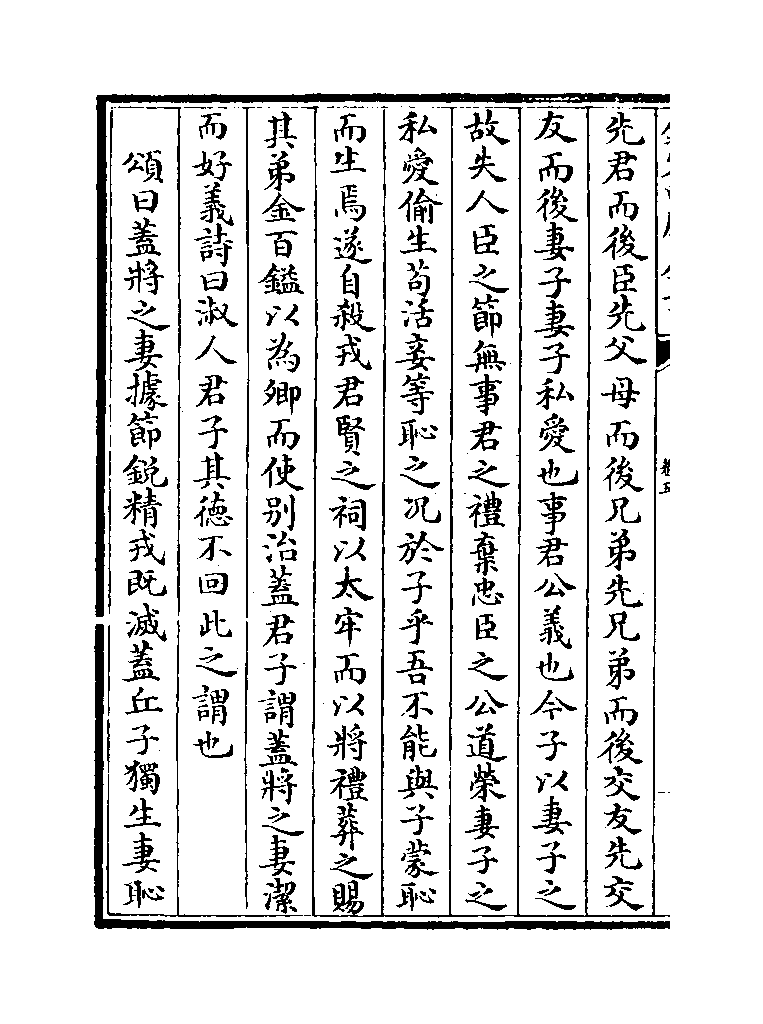 先君而後臣先父母而後兄弟先兄弟而後交友先交
友而後妻子妻子私愛也事君公義也今子以妻子之
故失人臣之節無事君之禮棄忠臣之公道榮妻子之
私愛偷生苟活妾等恥之况於子乎吾不能與子蒙恥
而生焉遂自殺戎君賢之祠以太牢而以將禮葬之賜
其弟金百鎰以為卿而使别治蓋君子謂蓋將之妻潔
而好義詩曰淑人君子其德不回此之謂也
頌曰蓋將之妻據節鋭精戎既滅蓋丘子獨生妻恥